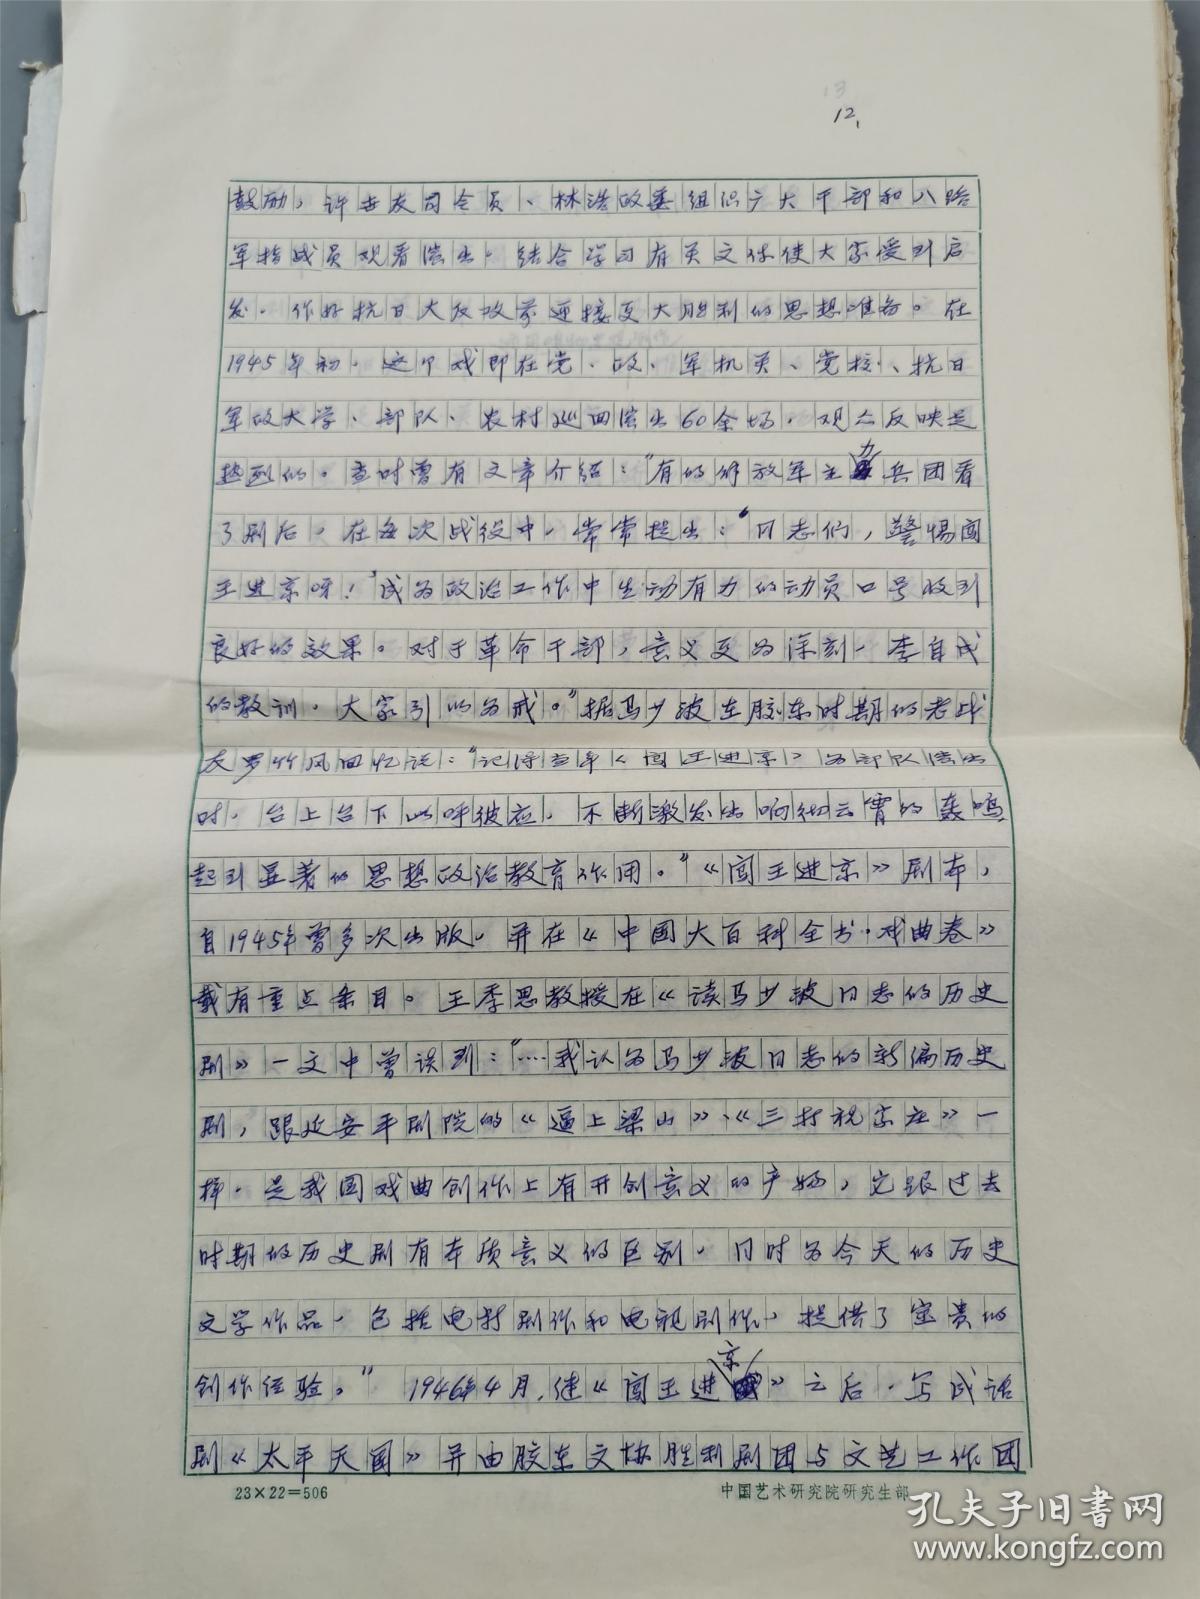 13
12,
鼓励，许世友司令员、林浩政委组织广大干部和八路
军指战员观看演出，结合学习有关文件使大家受到启
发，作好抗日大反攻前迎接更大胜利的思想准备。在
1945年初，这个戏即在党、政、军机关、党校、抗日
军政大学、部队、农村巡回演出60余场，观众反映是
热烈的。当时曾有文章介绍：“有的解放军主力兵团看
了剧后，在每次战役中，常常提出：‘同志们，警惕闯
王进京呀！’成为政治工作中生动有力的动员口号收到
良好的效果。对于革命干部，意义更为深刻，李自成
的教训，大家引以为戒。”据马少波在胶东时期的老战
友罗竹风回忆说：“记得当年《闯王进京》为部队演出
时，台上台下此呼彼应，不断激发出响彻云霄的轰鸣
起到显著的思想政治教育作用。”《闯王进京》剧本，
自1945年曾多次出版，并在《中国大百科全书·戏曲卷》
载有重点条目。王季思教授在《读马少波同志的历史
剧》一文中曾谈到：“……我认为马少波同志的新编历史
剧，跟延安平剧院的《逼上梁山》、《三打祝家庄》一
样，是我国戏曲创作上有开创意义的产物，它跟过去
时期的历史剧有本质意义的区别，同时为今天的历史
文学作品，包括电影剧作和电视剧作，提供了宝贵的
创作经验。”1946年4月，继《闯王进京》之后，写成话
剧《太平天国》并由胶东文协胜利剧团与文艺工作团
23×22=506
中国艺术研究院研究生部
孔夫子旧书网
www.kongfz.com